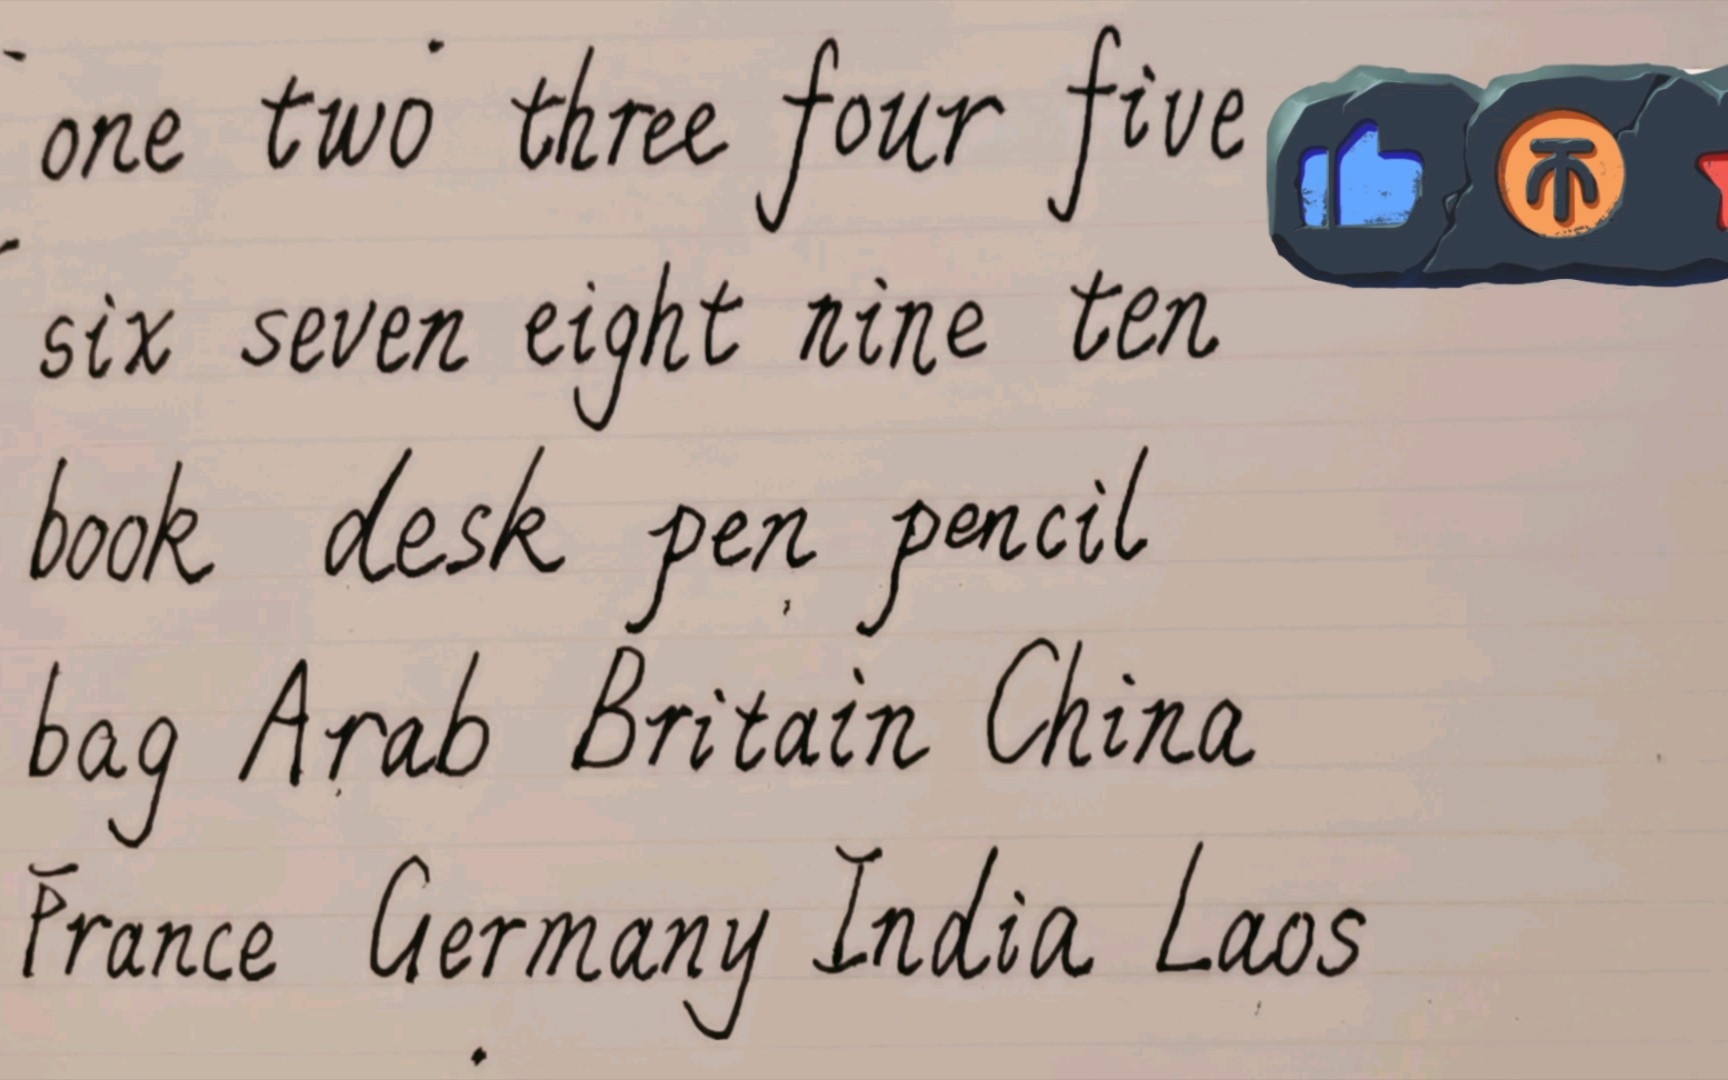 one two three four five
six seven eight nine ten
book desk pen pencil
bag Arab Britain China
France Germany India Laos